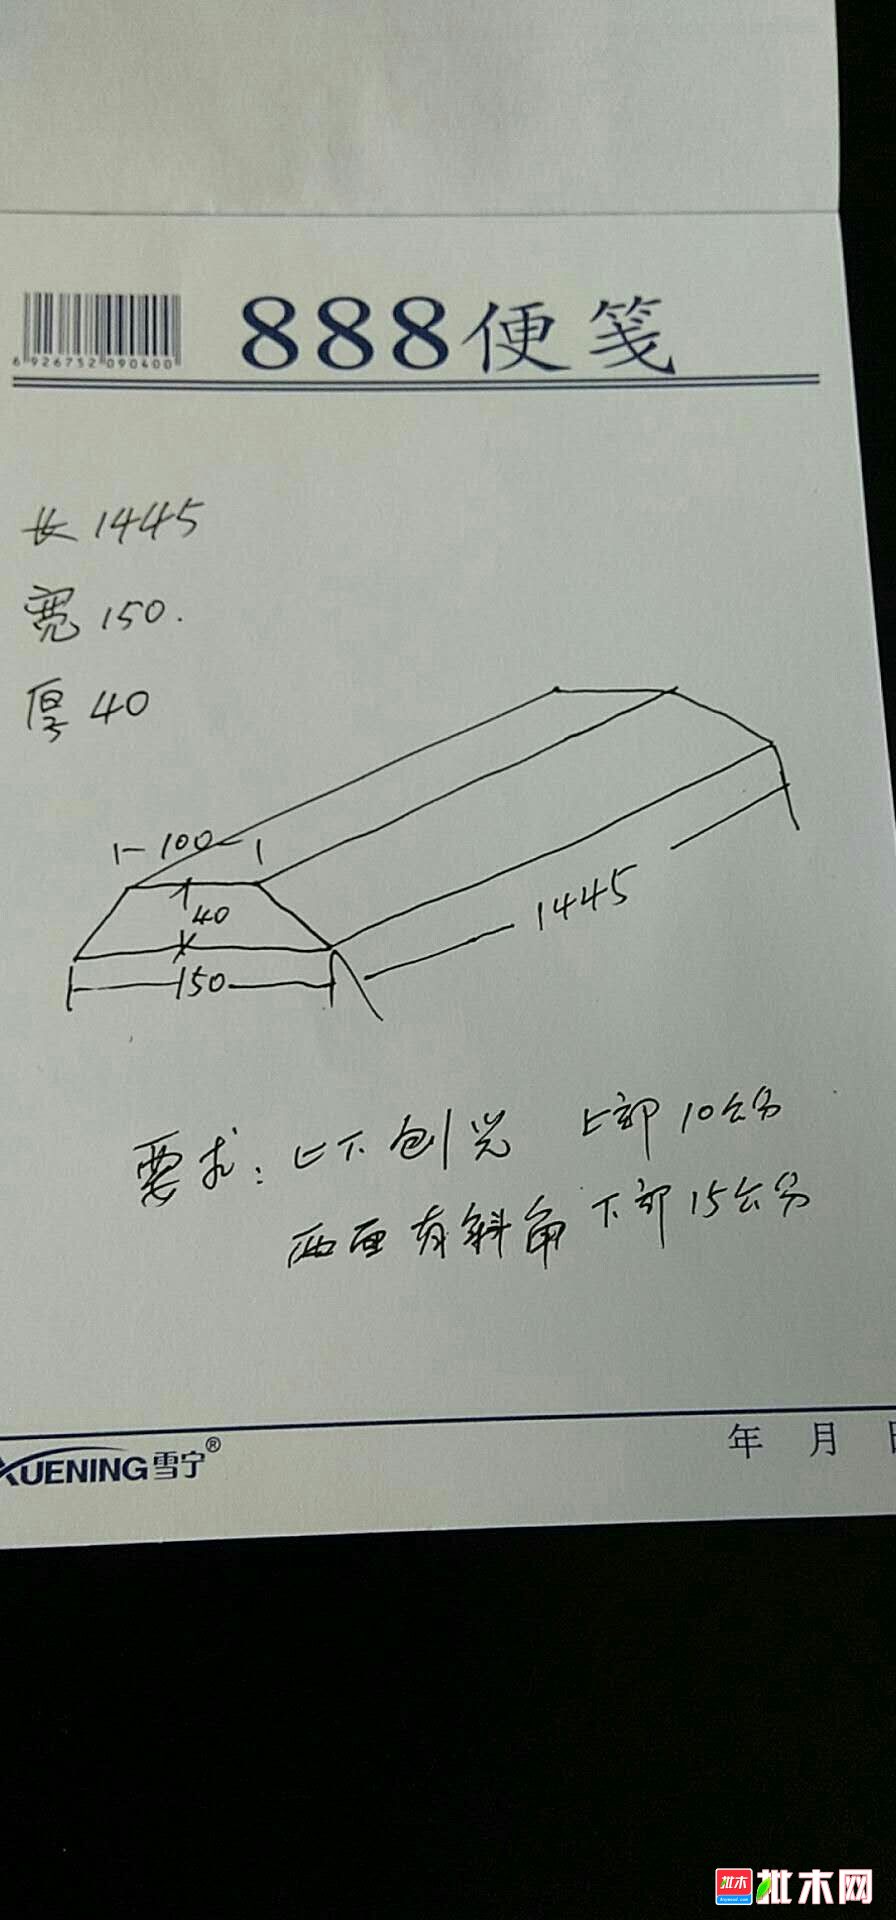 6 926752 090400
888便笺
长 1445
宽 150.
厚 40
100
40
150
1445
要求: 上下刨光 上部10公分
两面有斜角 下部15公分
XUENING雪宁®
年 月
批木
批木网